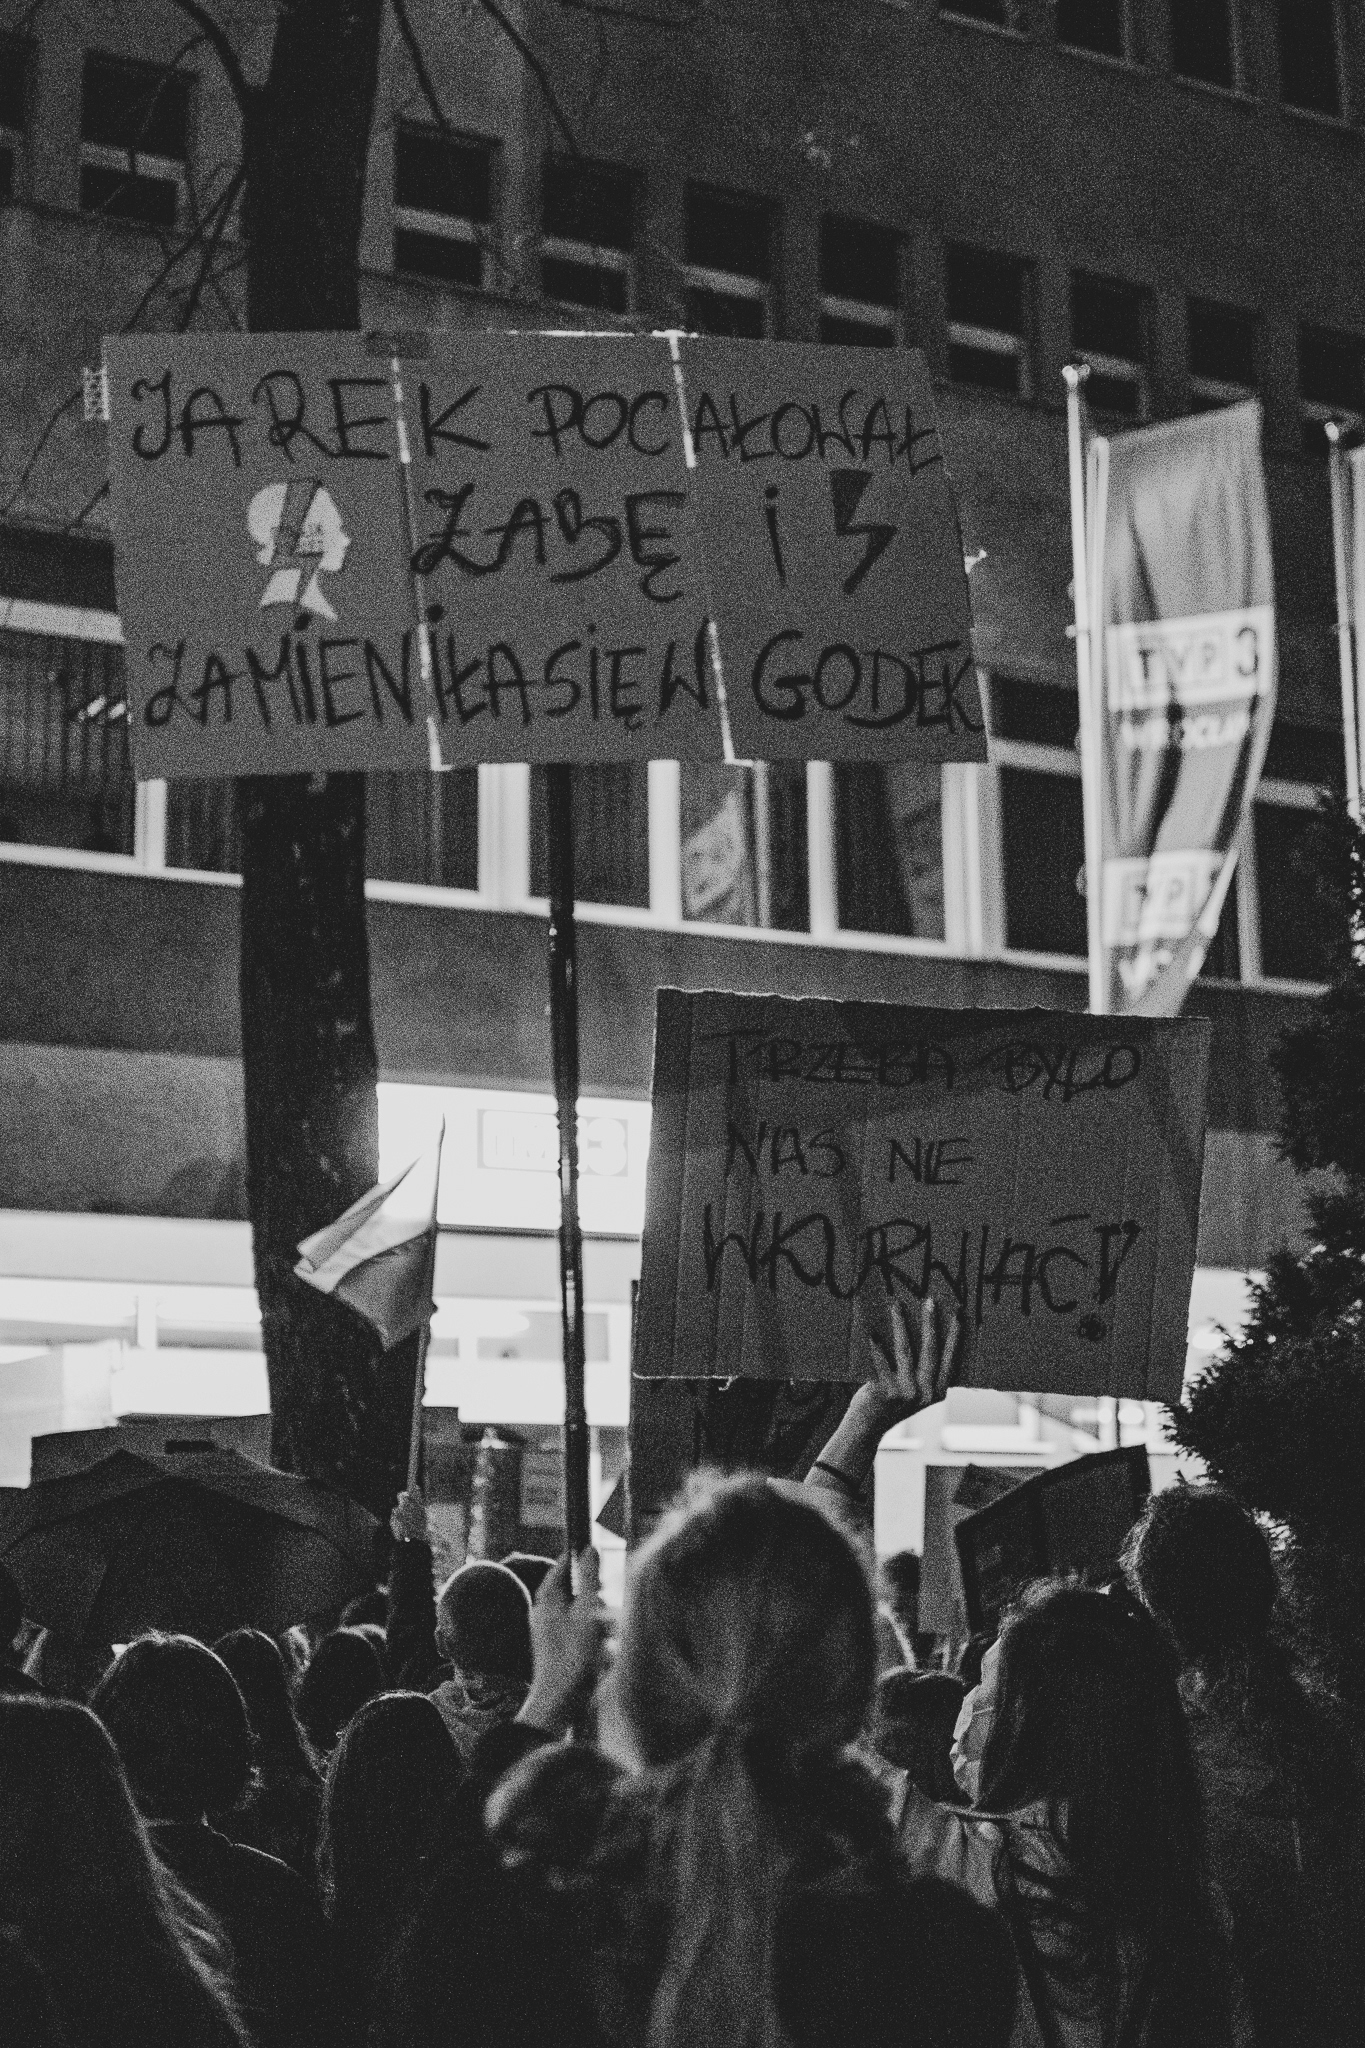 JAREK POCAŁOWAŁ
ŻABĘ i
ZAMIENIŁA SIĘ W GODEK
TVP3
WROCŁAW
TVP
TRZEBA BYŁO
NAS NIE
WKURWIAĆ!
TVP3